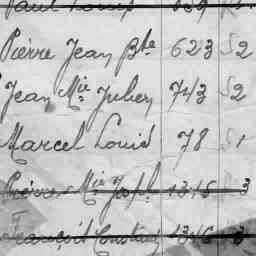 Paul Louis
Pierre Jean Bte 623 S 2
Jean Mie Julien 743 S 2
Marcel Louis 78 S 1
Pierre Mie Joph 1315 3
François Constant 1316